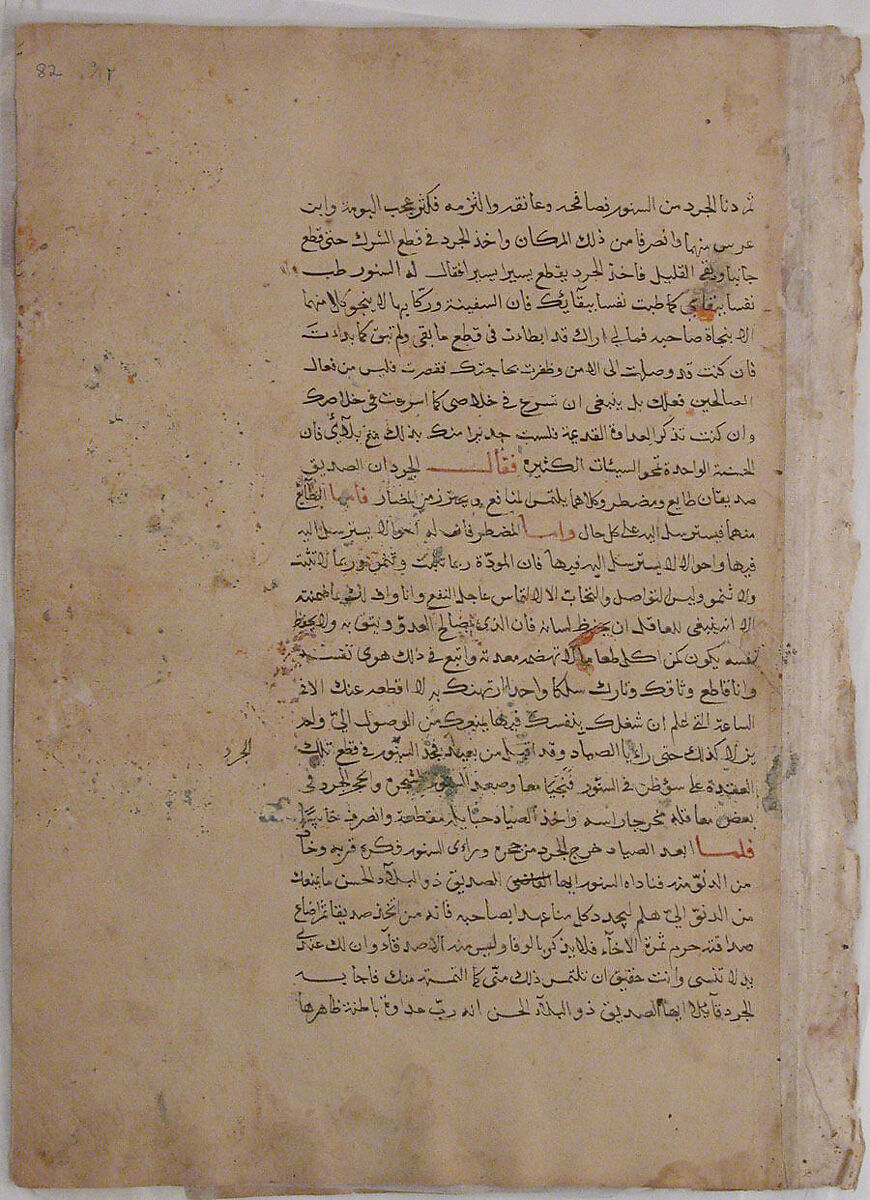 82
ثم دنا الجرد من السنور فصافحه وعانقه والتزمه فكثر عجب البومة وابن
عرس منهما وانصرفا من ذلك المكان واخذ الجرد في قطع الشرك حتى قطع
جانبا وبقي القليل فاخذ الجرد يقطع يسيرا يسيرا فقال له السنور طب
نفسا ببقاي كما طبت نفسا ببقايك فان السفينة وركابها لا ينجو كلا منهما
الا بنجاة صاحبه فمالي اراك قد ابطات في قطع ما بقي ولم تبق كما بدات
فان كنت قد وصلت الى الامن وظفرت بحاجتك فقصرت فليس من فعال
الصالحين فعلك بل ينبغي ان تسرع في خلاصي كما اسرعت في خلاصك
وان كنت تذكر العداوة القديمة فلست جديرا منك بذلك مع بلاءي فان
الحسنة الواحدة تمحو السيئات الكثيرة فقال الجرد ان الصديق
صديقان طايع ومضطر وكلاهما يلتمس المنافع ويحترز من المضار فاما الطايع
منهما فيسترسل اليه على كل حال واما المضطر فان له احوالا يسترسل اليه
فيها واحوالا لا يسترسل اليه فيها فان المودة ربما ثبتت ونمت وربما لا تثبت
ولا تنمو وليس التواصل والتحاب الا لالتماس عاجل النفع وانا واف لك
الا انه ينبغي للعاقل ان يحفظ لسانه فان الذي يصالح العدو ويثق به ولا يحفظ
نفسه يكون كمن اكل طعاما لا تهضمه معدته واتبع في ذلك هوى نفسه
وانا قاطع وثاقك وتارك سلكا واحدا ارتهنك به لا اقطعه عنك الا في
الساعة التي اعلم ان شغلك بنفسك فيها يمنعك من الوصول الي ولم
يزالا كذلك حتى رايا الصياد وقد اقبل من بعيد فجد السنور في قطع تلك
الجرد
العقدة على سؤ ظن في السنور فنجيا معا وصعد السنور الشجرة وانحجر الجرد في
بعض معاقله مخرجا راسه واخذ الصياد حبايله مقطعة وانصرف خايبا
فلما ابعد الصياد خرج الجرد من جحره وراى السنور فكره قربه وخاف
من الدنو منه فناداه السنور ايها الصديق ذو البلاء الحسن ما يمنعك
من الدنو الي هلم ليجدد كل منا عهدا بصاحبه فانه من اتخذ صديقا ثم اضاع
صداقته حرم ثمرة الاخاء فلا يذكر بالوفا وليس منه الاصدقاء وان لك عندي
يد لا تنسى وانت حقيق ان تلتمس ذلك مني كما التمسته منك فاجابه
الجرد قايلا ايها الصديق ذو البلاء الحسن انه رب عداوة باطنة ظاهرها